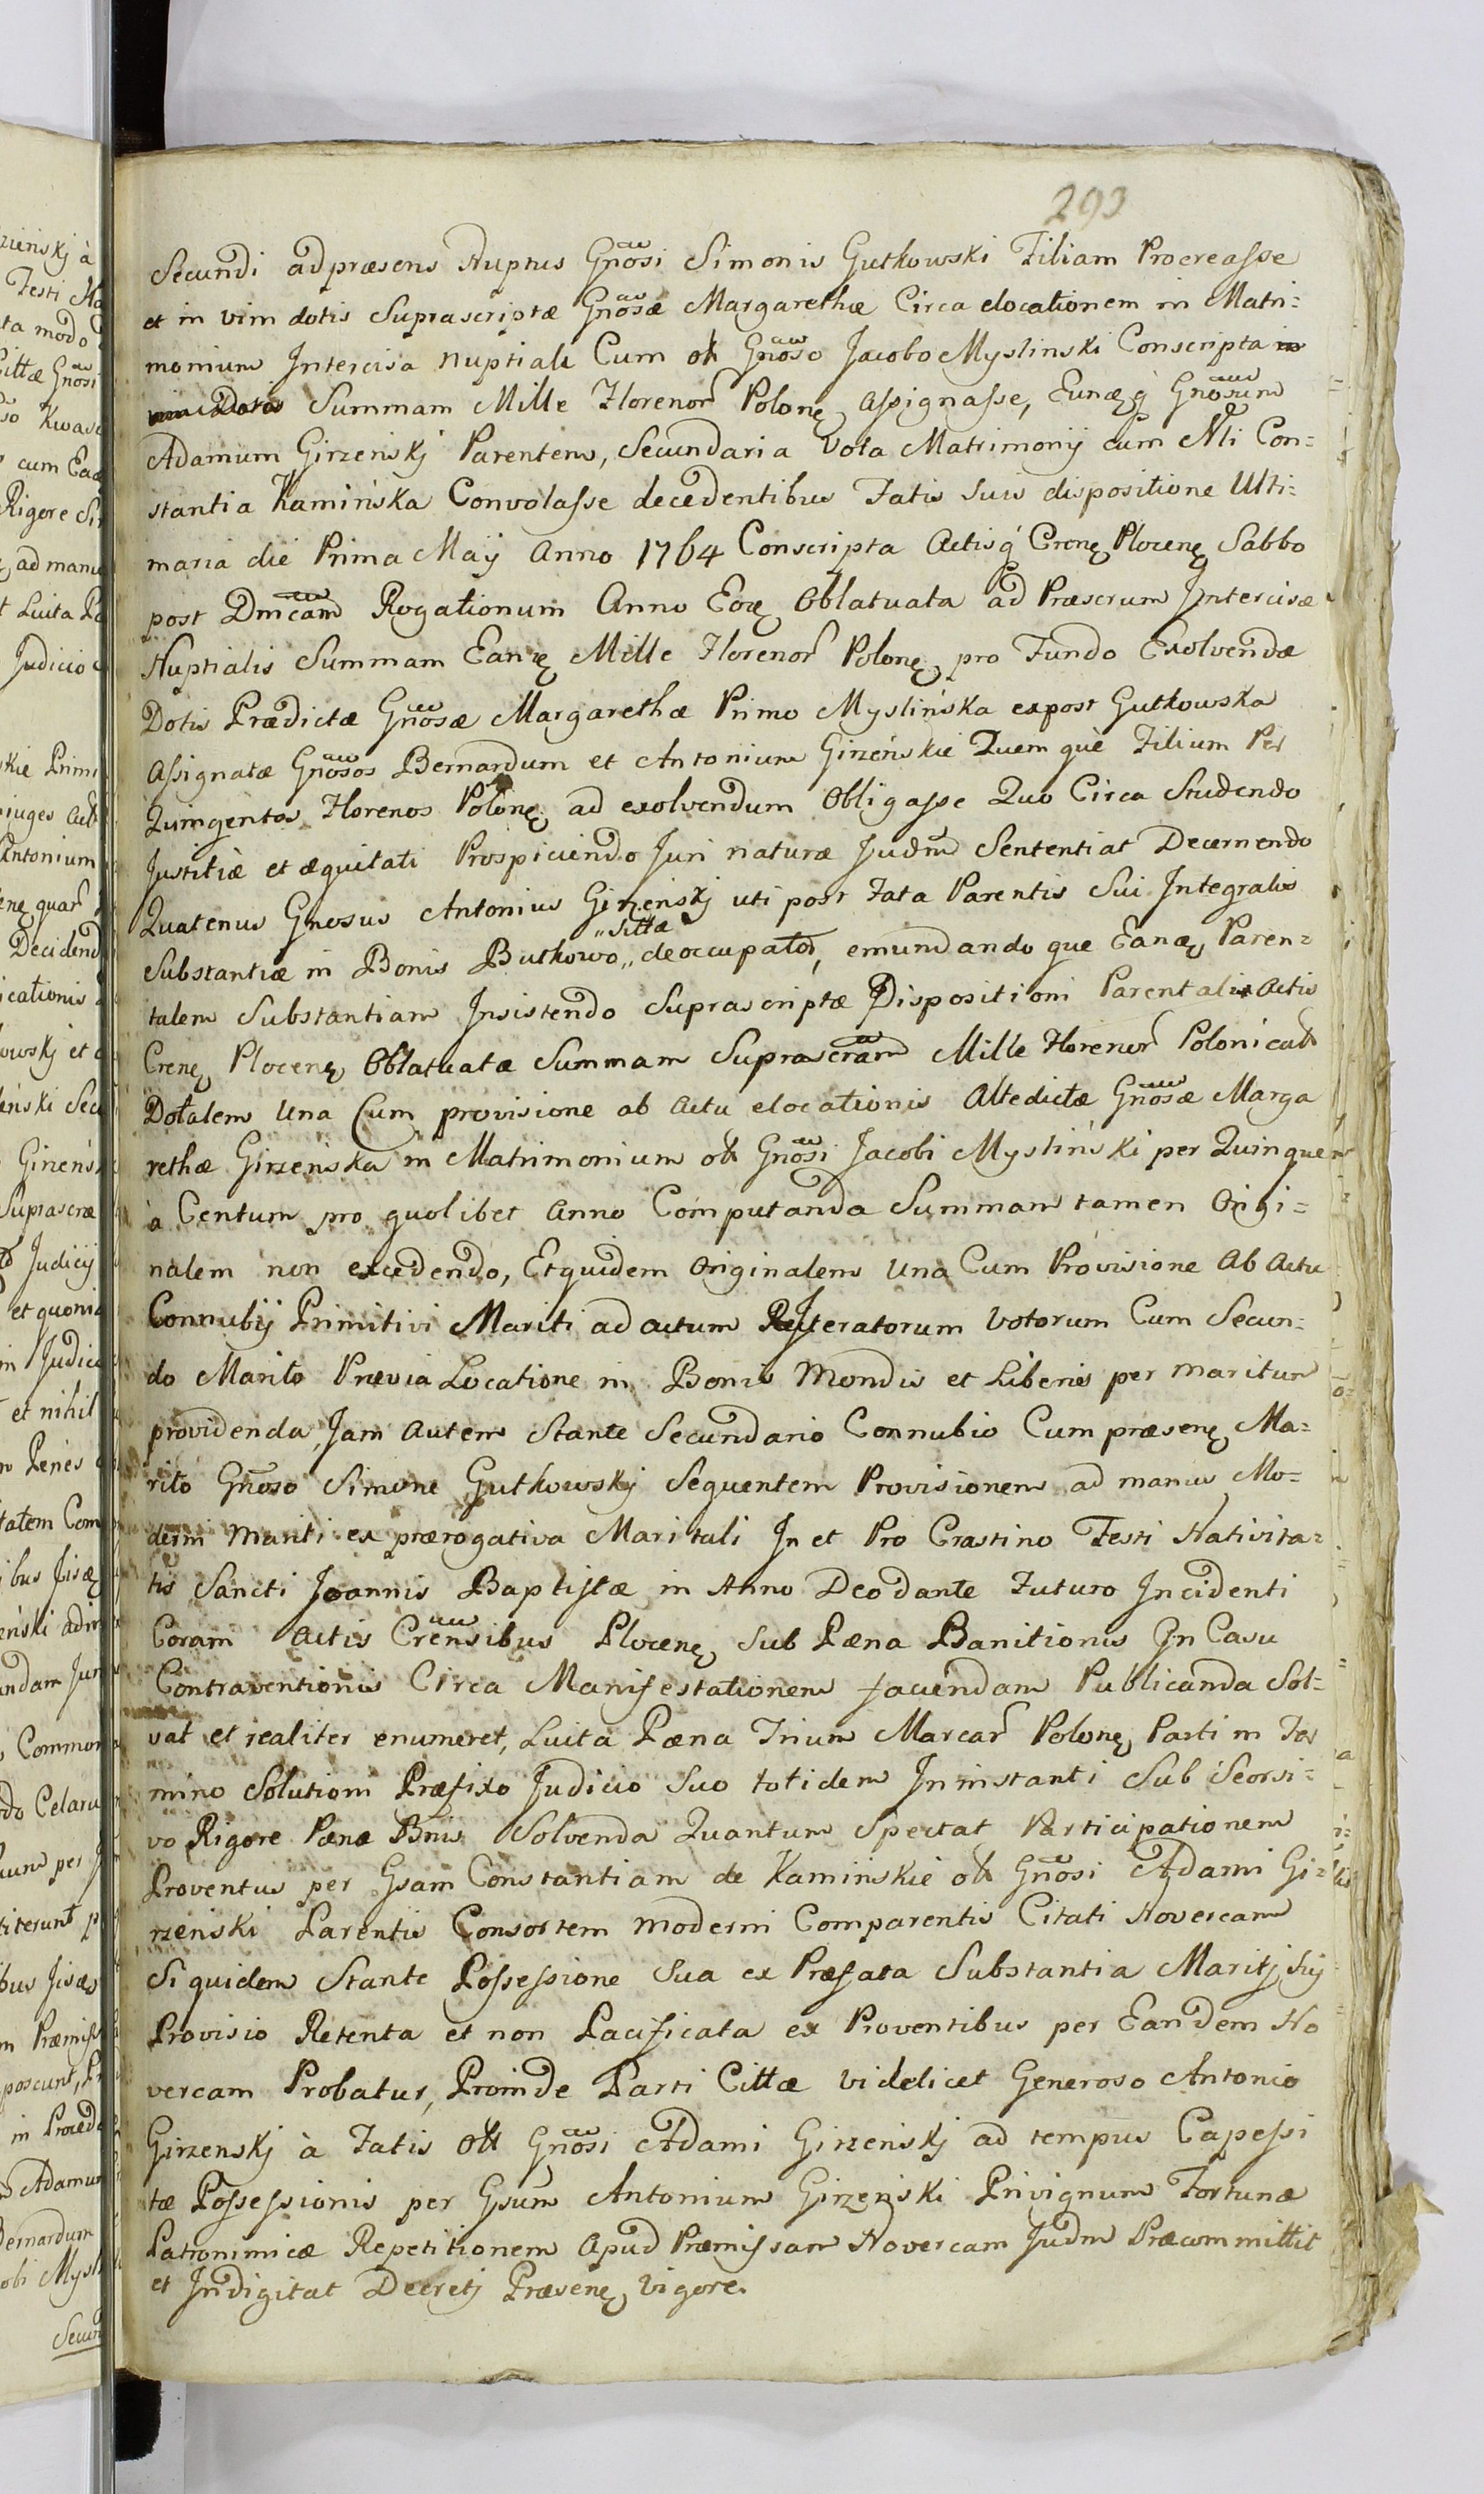 293
Secundi ad præsens Nuptus Gnosi Simonis Gutkowski Filiam Procreasse
et in vim dotis Suprascriptæ Gnosæ Margarethæ Circa elocationem in Matri=
monium Intercisa nuptiali Cum olt Gnoso Jacobo Myslinski Conscripta
Summam Mille Florenor Polonę assignasse, Eunæq Gnosum
Adamum Girzenskj Parentem, Secundaria Vota Matrimonij cum Mti Con=
stantia Kamińska Convolasse decedentibus Fatis suis dispositione Ulti=
maria die Prima Maij Anno 1764 Conscripta Actisq Crenę Plocenę Sabbo
post Dmcam Rogationum Anno Eoę Oblatuata ad Præscrum Intercisæ
Nuptialis Summam Eanę Mille Florenor Polonę pro Fundo Exolvendæ
Dotis Prædictæ Gnosæ Margarethæ Primo Myslińska expost Gutkowska
Assignatæ Gnosos Bernardum et Antonium Girzeńskie Quemquè Filium Per
Quingentos Florenos Polonę ad exolvendum Obligasse Quo Circa Studendo
Justitiæ et æquitati Prospiciendo Juri naturæ Judm Sententiat Decernendo
Quatenus Gnosus Antonius Girzenskj uti post Fata Parentis Sui Integralis
Sittæ
Substantiæ in Bonis Butkowo,, deoccupator, emundando que Eanæ, Paren=
talem Substantiam Insistendo Suprascriptæ Dispositioni Parentali Actis
Crenę Plocenę Oblatuatæ Summam Suprascram Mille Florenor Polonical
Dotalem Una Cum provisione ab Actu elocationis Altedictæ Gnosæ Marga
rethæ Girzeńska in Matrimonium olt Gnosi Jacobi Mysliński per Quinque
à Centum pro quolibet Anno Computanda Summam tamen Origi=
nalem non excedendo, Etquidem Originalem Una Cum Provisione Ab Actu
Connubij Primitivi Mariti ad actum Reiteratorum Votorum Cum Secun=
do Marito Prævia Locatione in Bonis Mondis et Liberis per Maritum
providenda, Jam Autem Stante Secundario Connubio Cum præsenę Ma=
rito Gnoso Simone Gutkowskj Sequentem Provisionem ad manus Mo=
derni Mariti ex prærogativa Maritali In et Pro Crastino Festi Nativita=
tis Sancti Joannis Baptistæ in Anno Deo dante Futuro Incidenti
Coram Actis Crensibus Plocenę Sub Pæna Banitionis In Casu
Contraventionis Circa Manifestationem faciendam Publicanda Sol=
vat et realiter enumeret, Luita Pæna Trium Marcar Polonę Parti in Ter
mino Solutioni Præfixo Judicio Suo totidem In instanti Sub Seorsi=
vo Rigore Pænæ Bnis Solvenda Quantum Spectat Participationem
Proventus per Gsam Constantiam de Kamińskie olt Gnosi Adami Gi=
rzenski Parentis Consortem moderni Comparentis Citati Novercam
Siquidem Stante Possessione Sua ex Præfata Substantia Maritj Suj
Provisio Retenta et non Pacificata ex Proventibus per Eandem No
vercam Probatur, Proinde Parti Cittæ videlicet Generoso Antonio
Girzenskj à Fatis Olt Gnosi Adami Girzeńskj ad tempus Capessi
tæ Possessionis per Gsum Antonium Girzeński Privignum Fortunæ
Patronimicæ Repetitionem Apud Præmissam Novercam Judm Præcommittit
et Indigitat Decretj Præsenę Vigore.